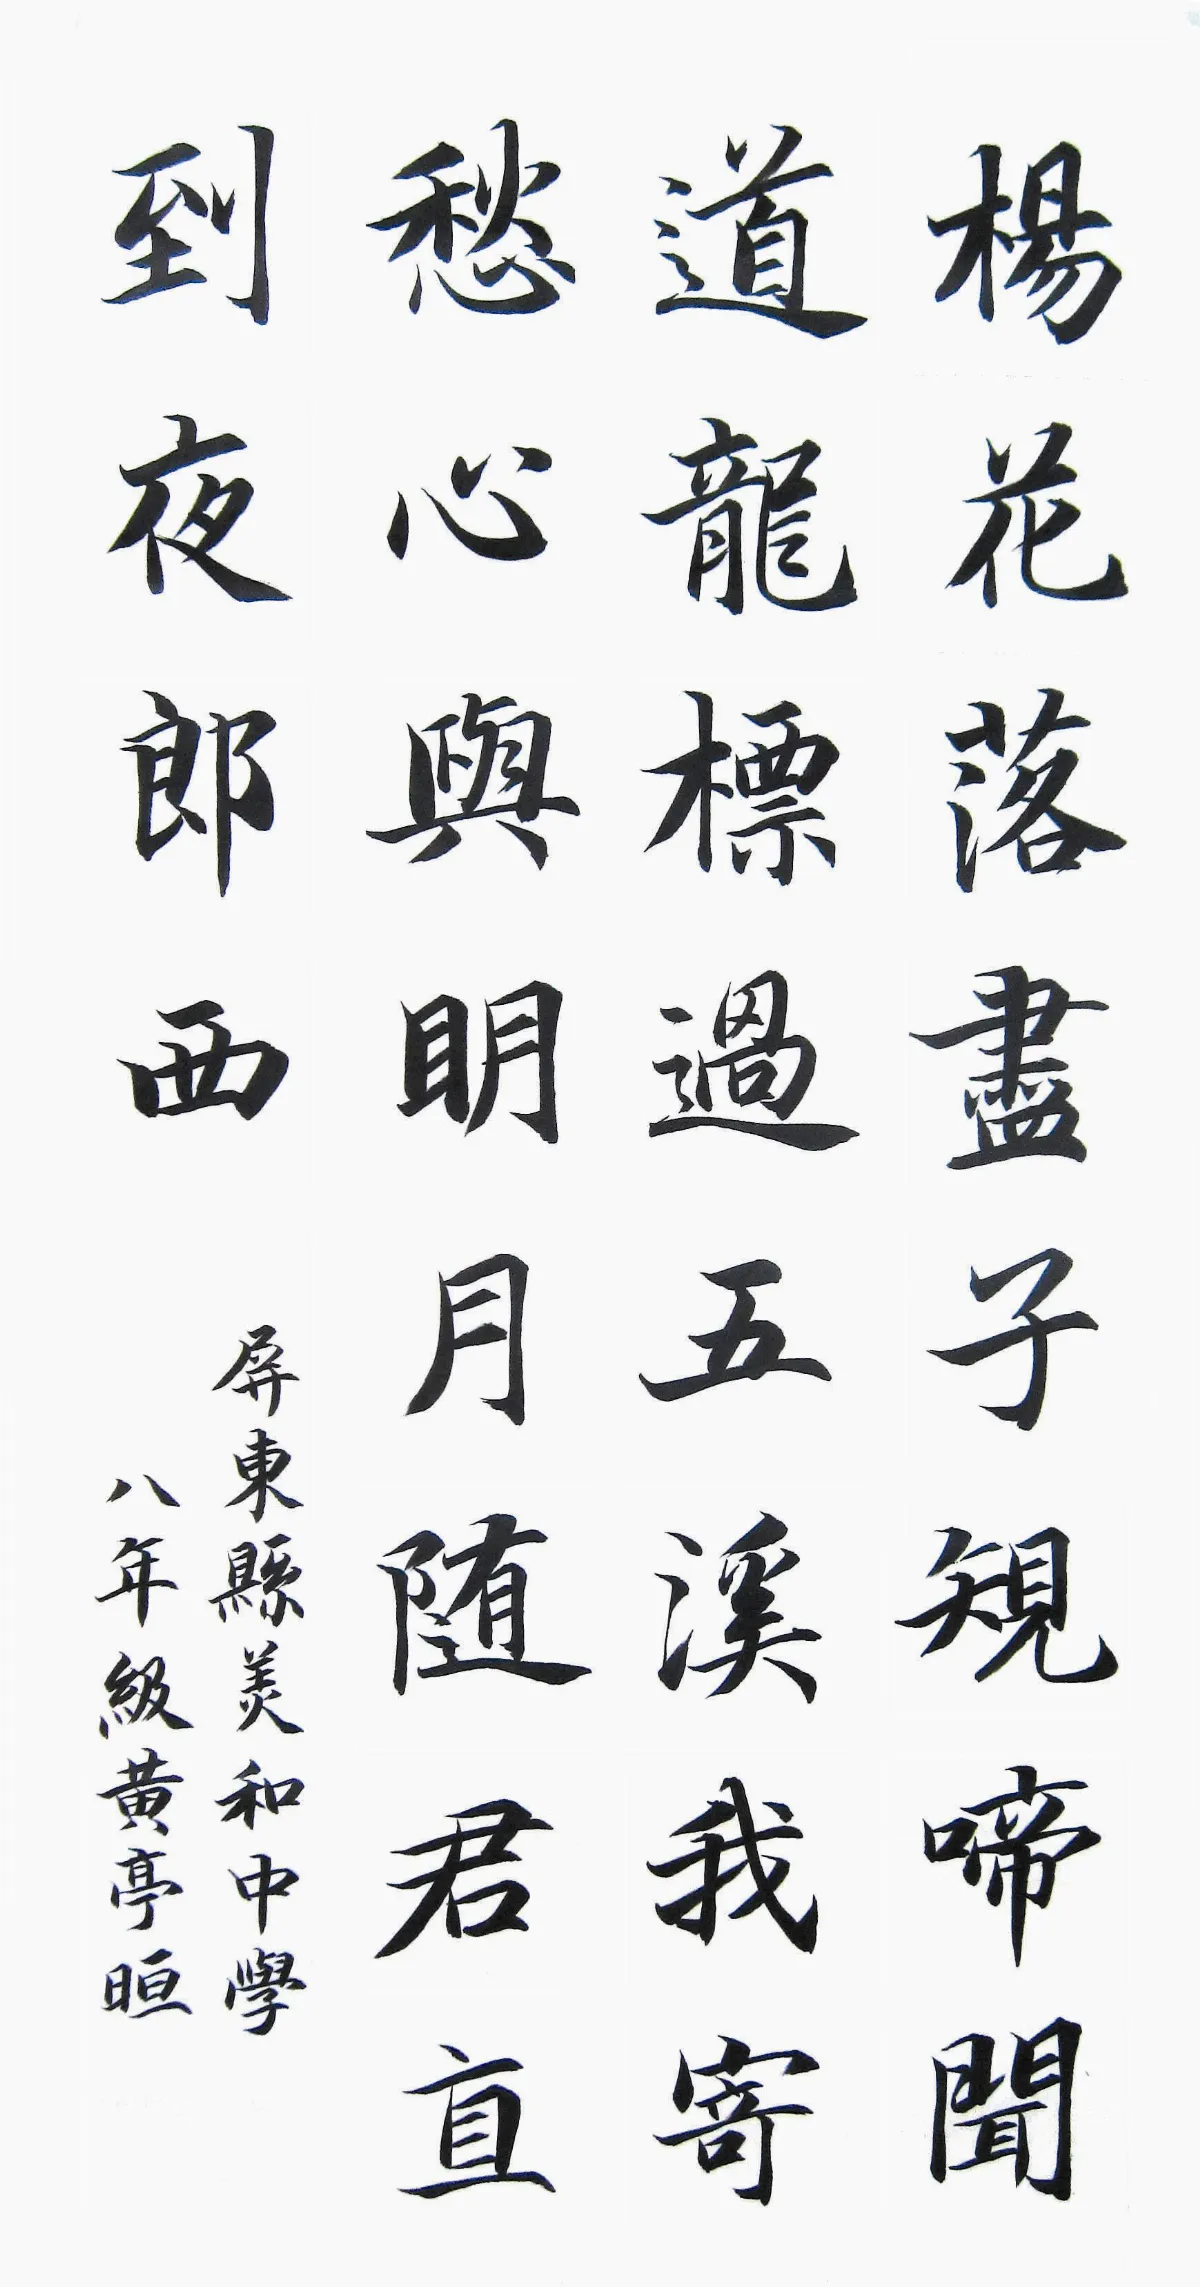 楊花落盡子規啼聞
道龍標過五溪我寄
愁心與明月随君直
到夜郎西
屏東縣美和中學
八年級黃亭晅